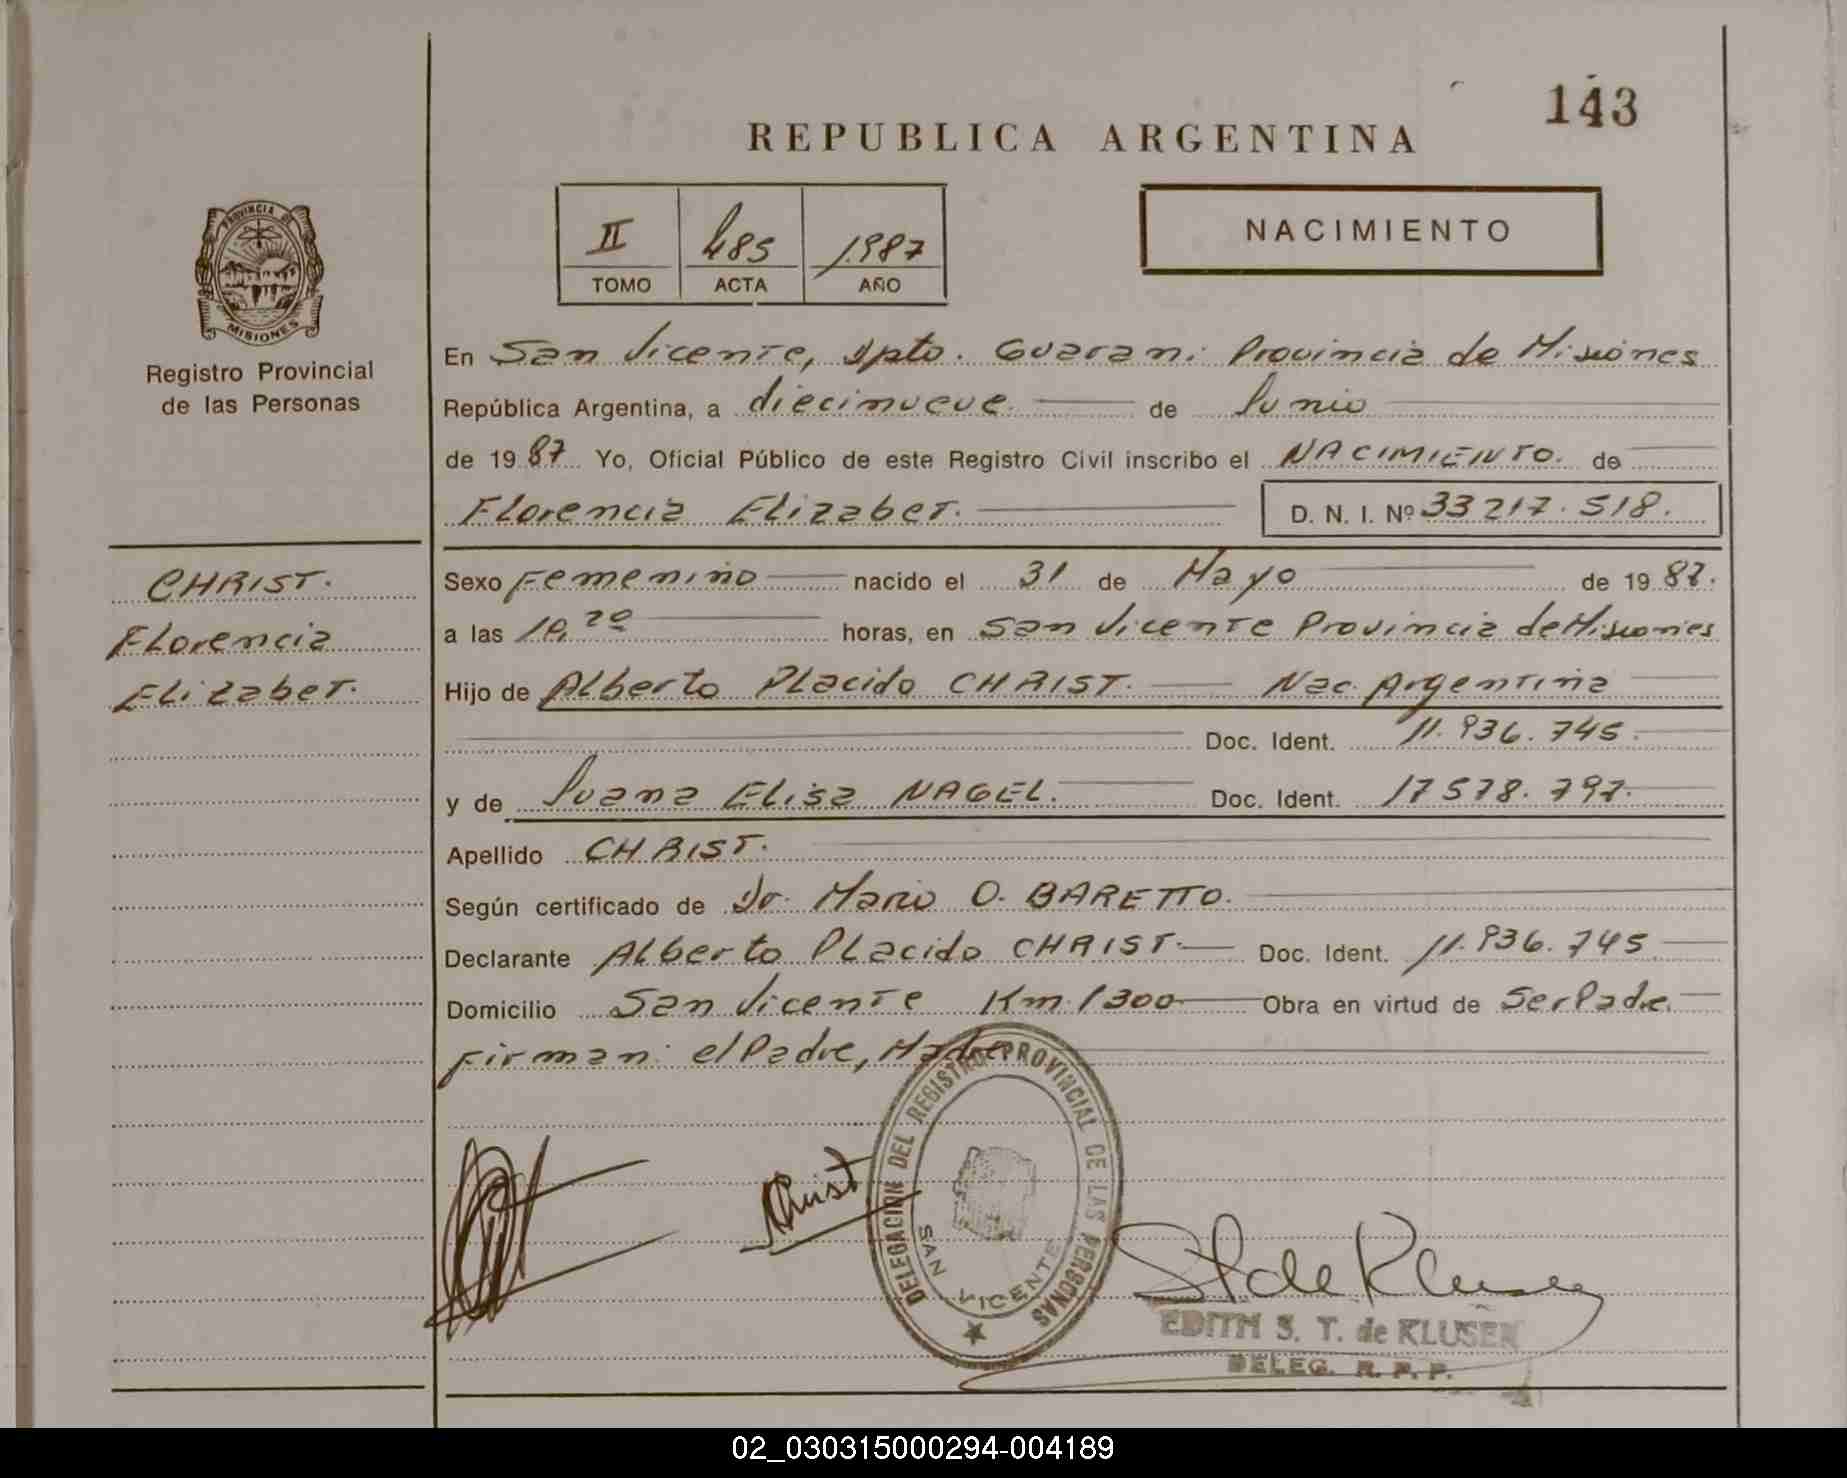 143
REPUBLICA ARGENTINA
PROVINCIA DE
MISIONES
Registro Provincial
de las Personas
II 485 1987
TOMO ACTA AÑO
NACIMIENTO
En San Vicente, Dpto. Guarani Provincia de Misiones
República Argentina, a diecinueve de Junio
de 1987 Yo, Oficial Público de este Registro Civil inscribo el NACIMIENTO. de
Florencia Elizabet. D. N. I. Nº 33 217. 518.
CHRIST.
Florencia
Elizabet.
Sexo Femenino nacido el 31 de Mayo de 1987.
a las horas, en San Vicente Provincia de Misiones
Hijo de Alberto Placido CHRIST. Nac. Argentina
Doc. Ident. 11. 936. 745.
y de Juana Elisa NAGEL. Doc. Ident. 17 578. 797.
Apellido CHRIST.
Según certificado de Dr. Mario O. BARETTO.
Declarante Alberto Placido CHRIST. Doc. Ident. 11. 936. 745
Domicilio San Vicente Km. 1300 Obra en virtud de Ser Padre.
Firman: el Padre, Madre
Christ
DELEGACION DEL REGISTRO PROVINCIAL DE LAS PERSONAS
SAN VICENTE
St de Klusen
EDITH S. T. de KLUSEN
DELEG. R. P. P.
02_030315000294-004189